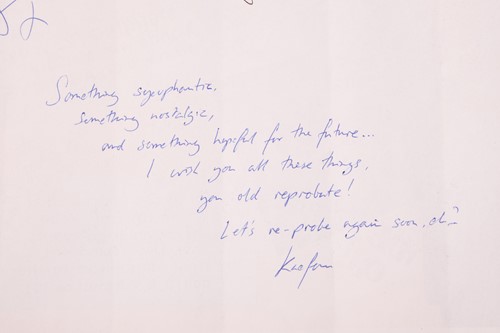 Something sycophantic,
something nostalgic,
and something hopeful for the future...
I wish you all these things,
you old reprobate!
Let's re-probe again soon, eh?